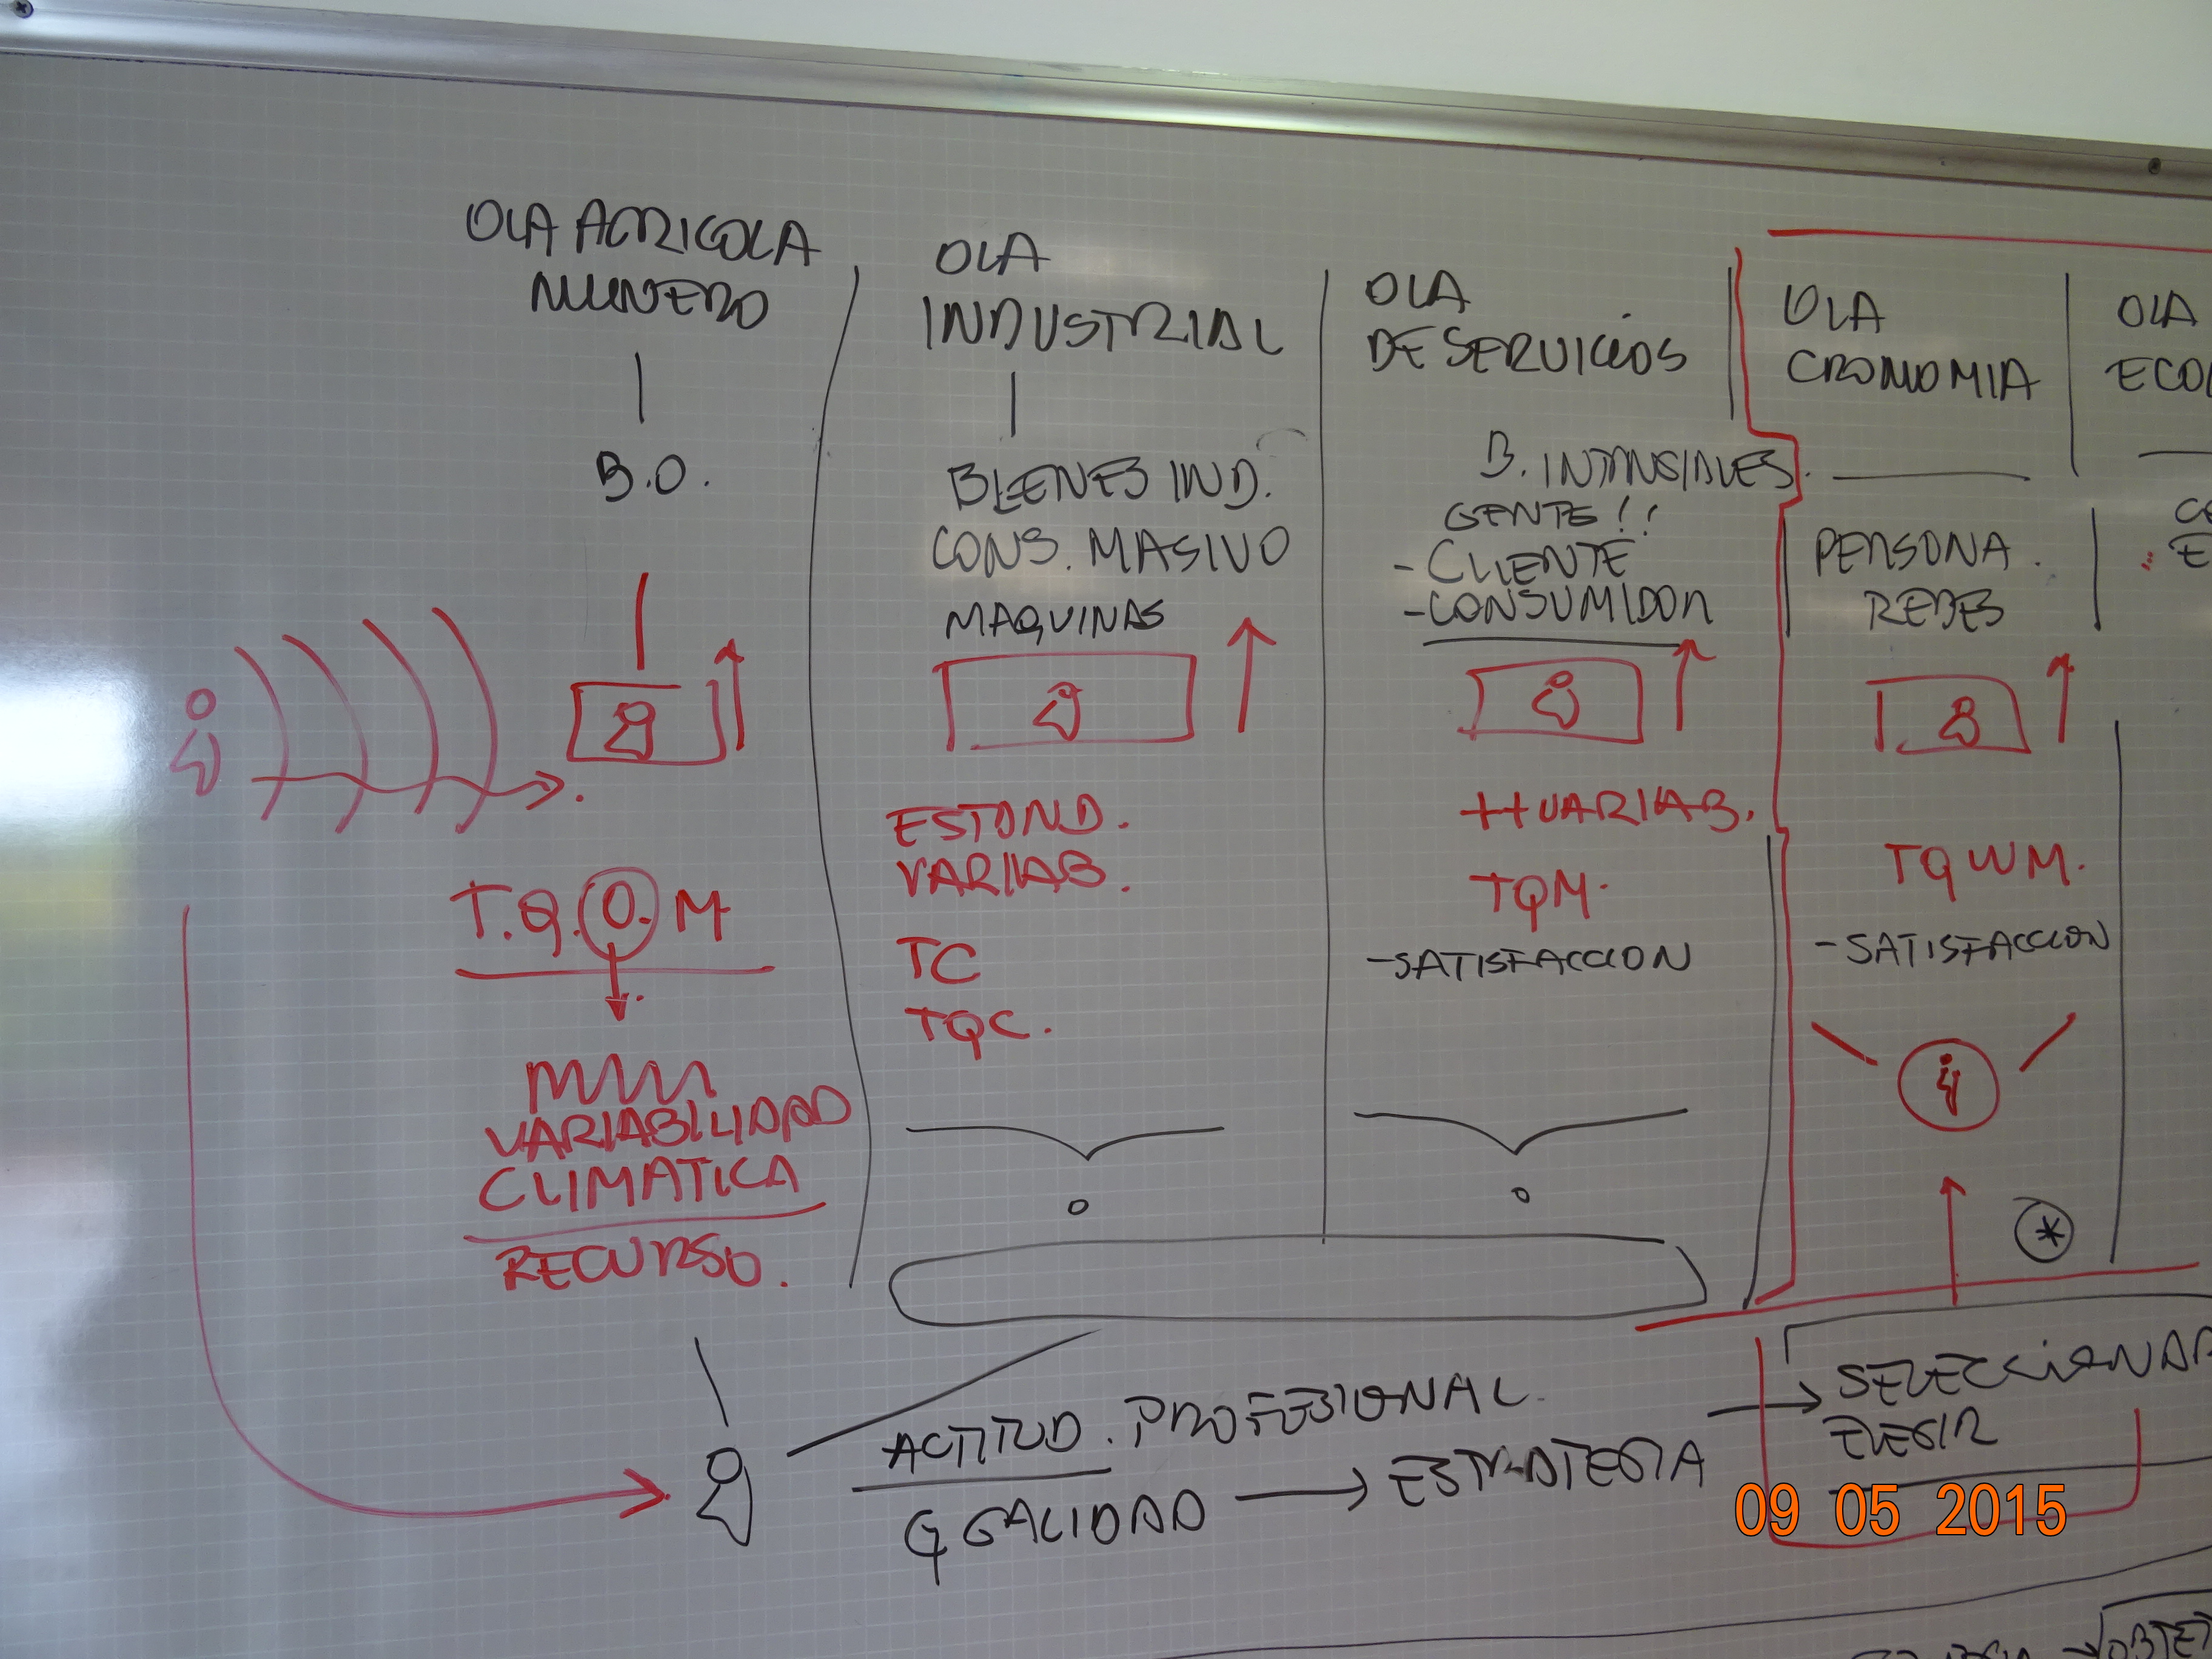 OLA AGRICOLA
MINERO
B.O.
T.Q.O.M
VARIABILIDAD
CLIMATICA
RECURSO.
OLA
INDUSTRIAL
BIENES IND.
CONS. MASIVO
MAQUINAS
ESTAND.
VARIAB.
TC
TQC.
OLA
DE SERVICIOS
B. INTANGIBLES
GENTE!!
- CLIENTE
- CONSUMIDOR
++VARIAB.
TQM.
- SATISFACCION
OLA
CRONOMIA
PERSONA.
REDES
TQWM.
- SATISFACCION
*
OLA
ECO
ACTITUD. PROFESIONAL.
Q CALIDAD → ESTRATEGIA → SELECCIONAR
ELEGIR
09 05 2015